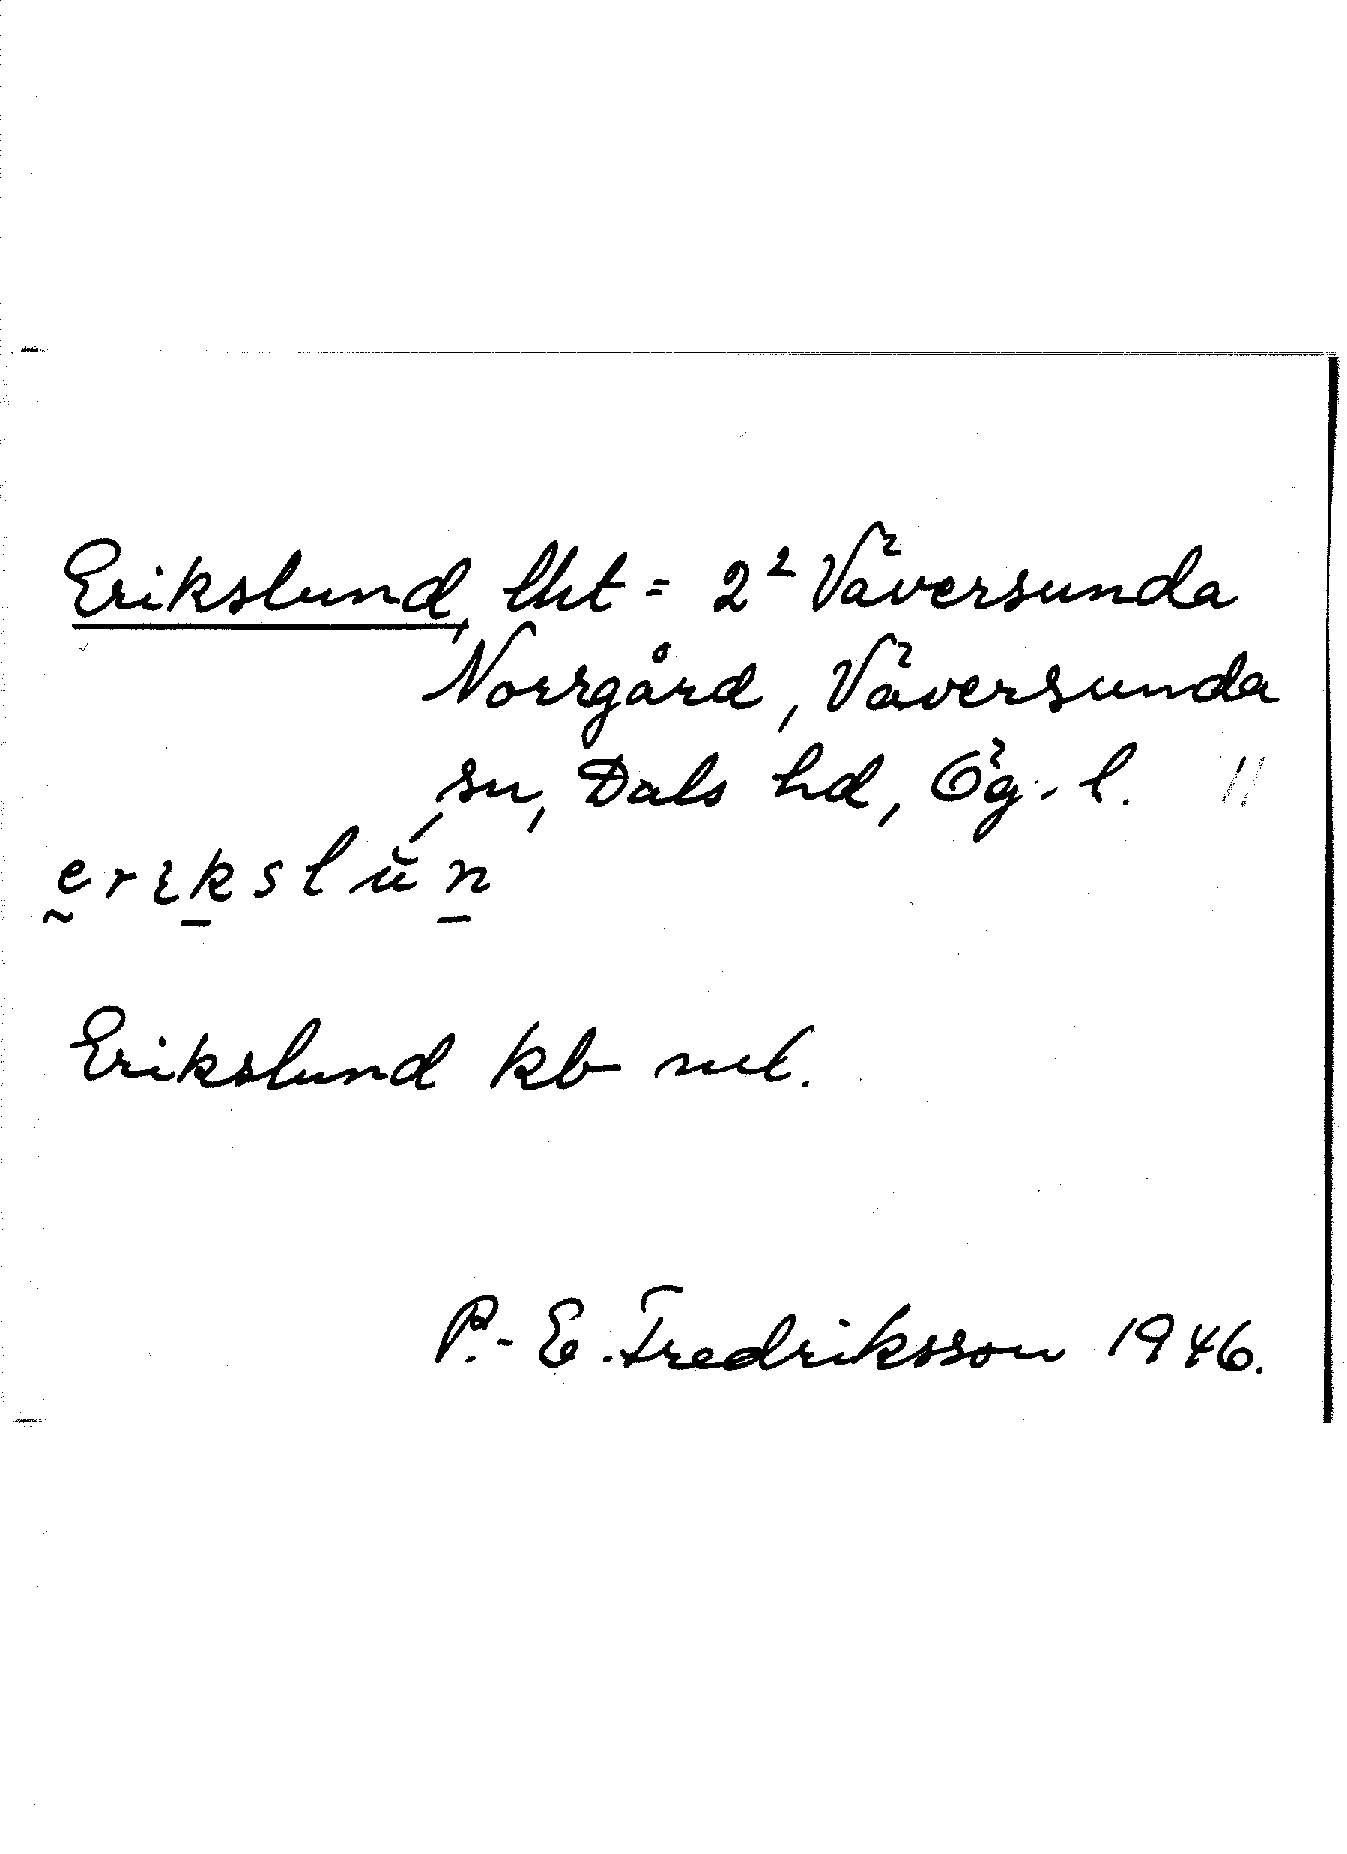 Erikslund, lht = 2² Väversunda
Norrgård, Väversunda
sn, Dals hd, Ög. l.
erikslùn
Erikslund kb
P.-E. Fredriksson 1946.